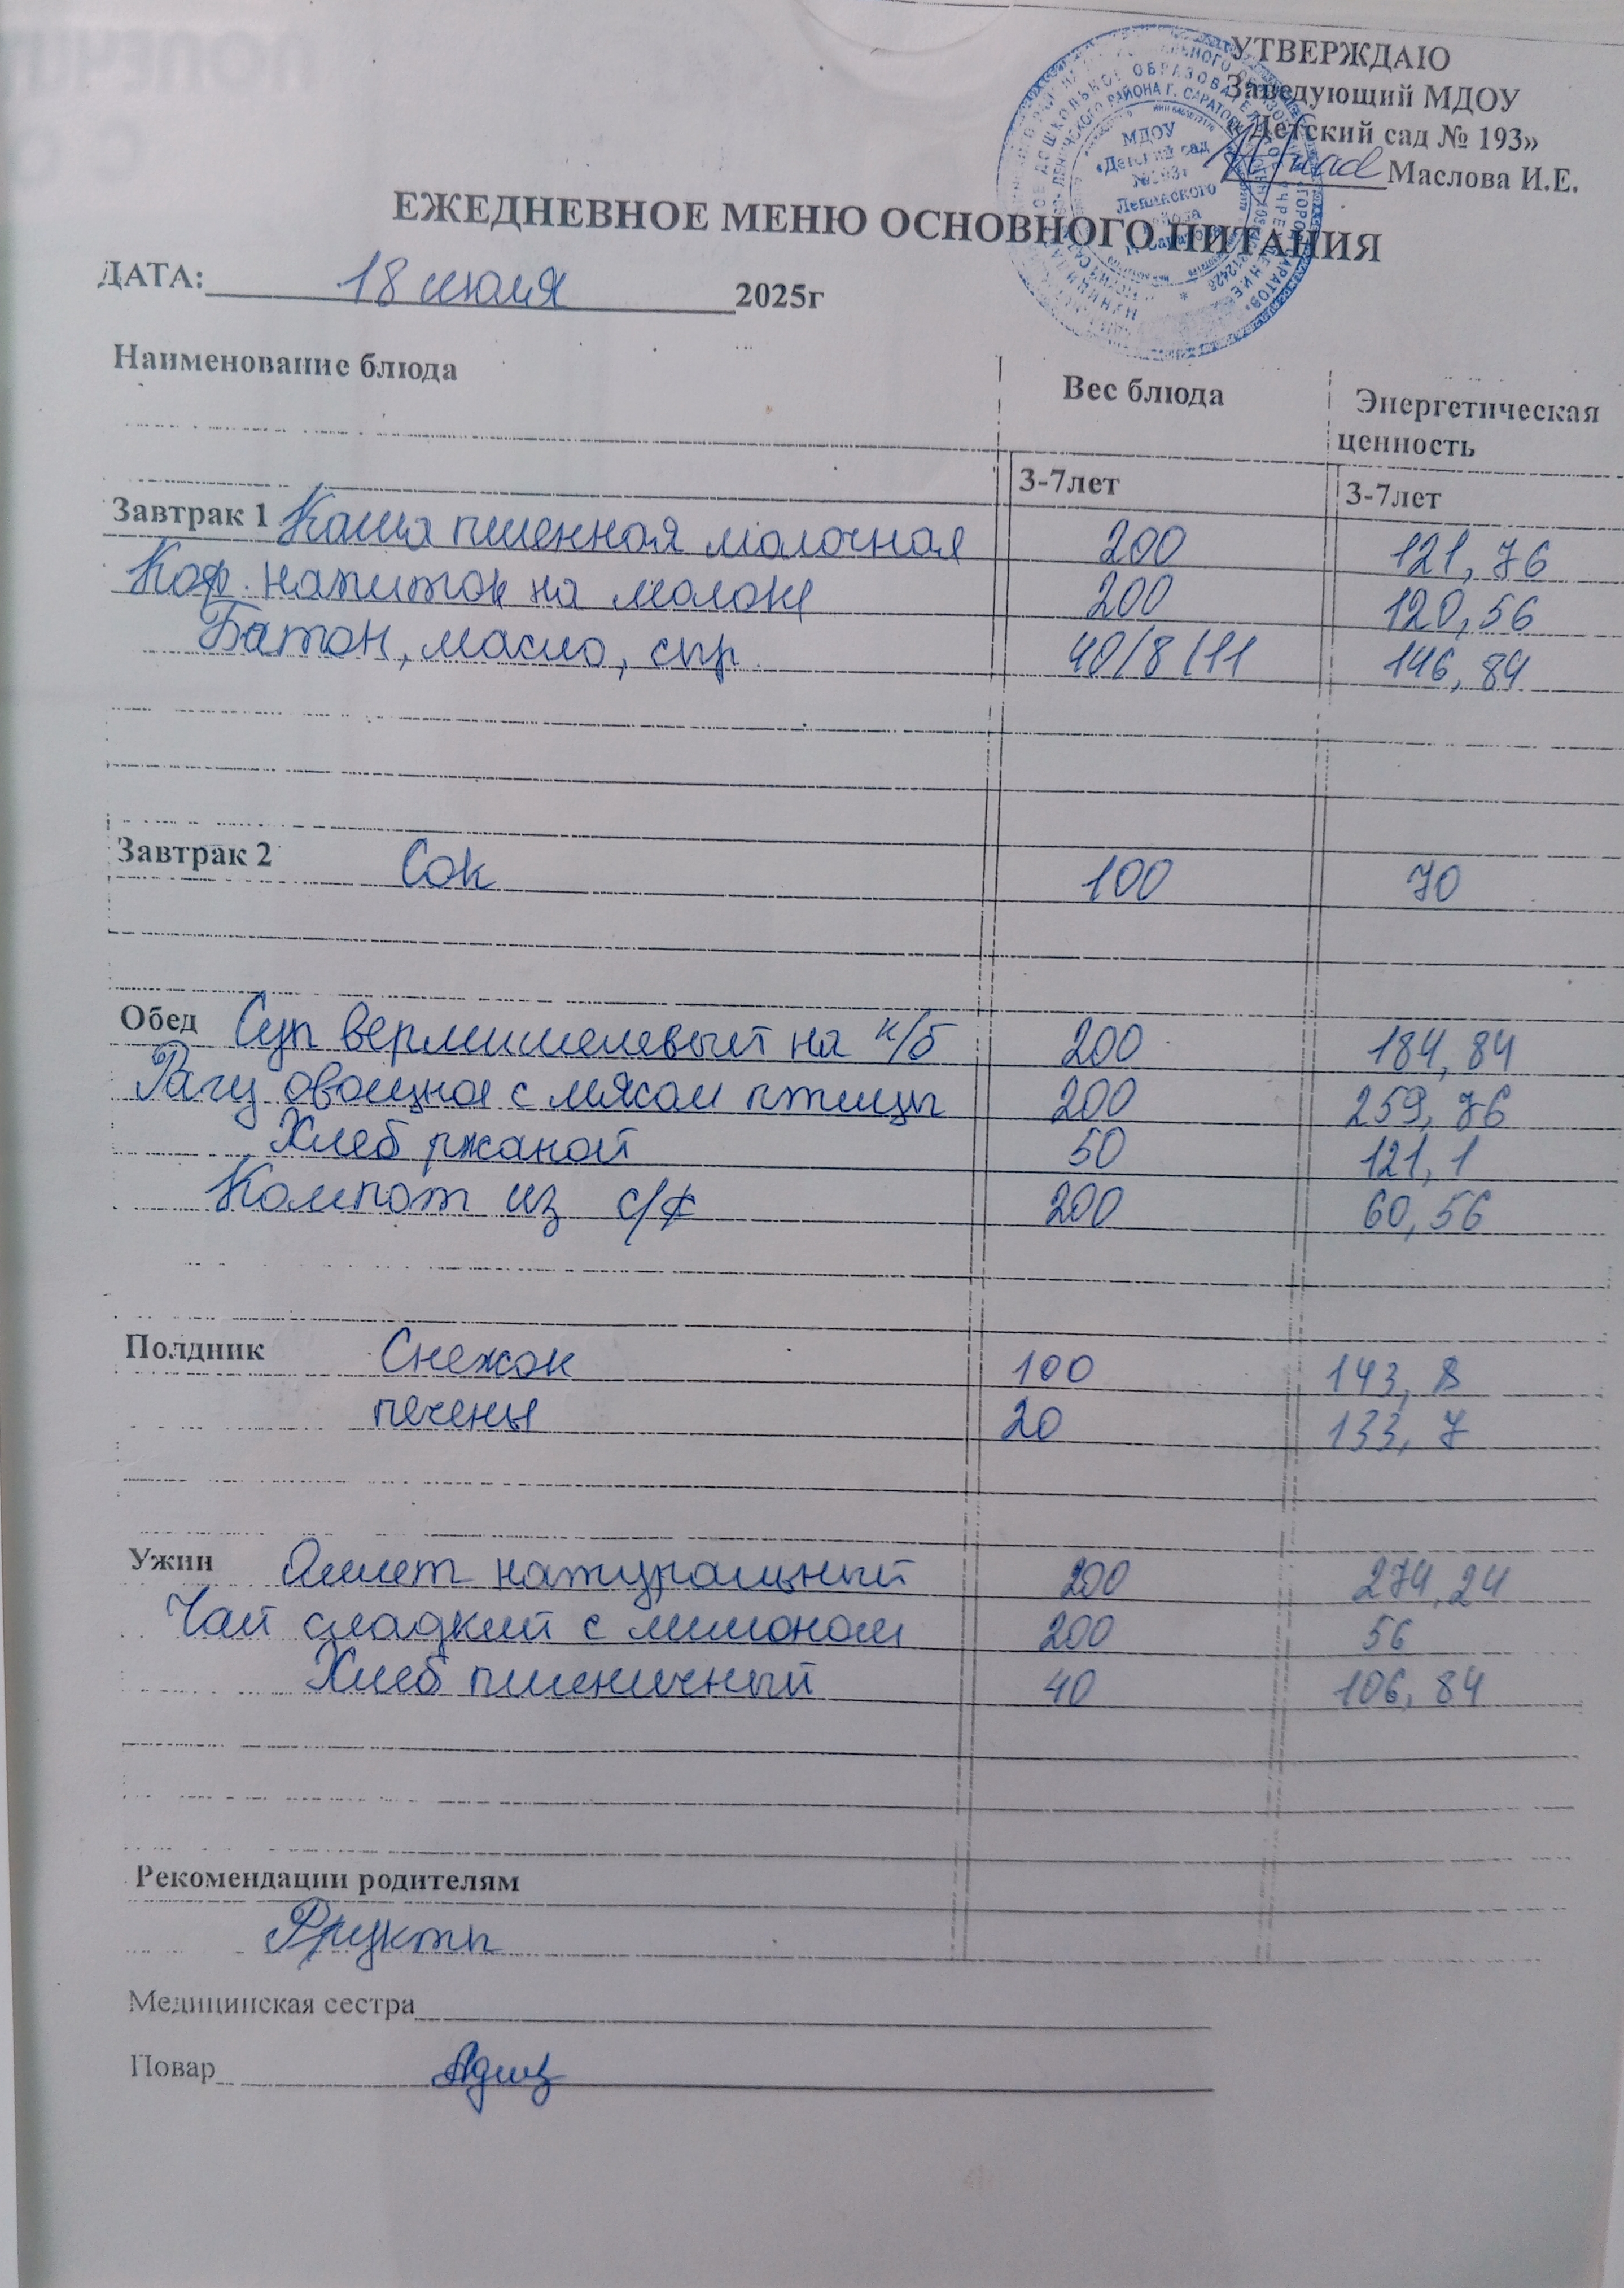 УТВЕРЖДАЮ
Заведующий МДОУ
Детский сад № 193»
Маслова И.Е.
МДОУ
«Детский сад
№193»
Ленинского
района
г. Саратова
ЕЖЕДНЕВНОЕ МЕНЮ ОСНОВНОГО ПИТАНИЯ
ДАТА: 18 июля 2025г
Наименование блюда Вес блюда Энергетическая ценность
3-7лет 3-7лет
Завтрак 1 Каша пшенная молочная 200 121,76
Коф. напиток на молоке 200 120,56
Батон, масло, сыр. 40/8/11 146,84
Завтрак 2 Сок 100 70
Обед Суп вермишелевый на к/б 200 184,84
Рагу овощное с мясом птицы 200 259,76
Хлеб ржаной 50 121,1
Компот из с/ф 200 60,56
Полдник Снежок 100 143,8
печенье 20 133,7
Ужин Омлет натуральный 200 274,24
Чай сладкий с лимоном 200 56
Хлеб пшеничный 40 106,84
Рекомендации родителям
Фрукты
Медицинская сестра
Повар